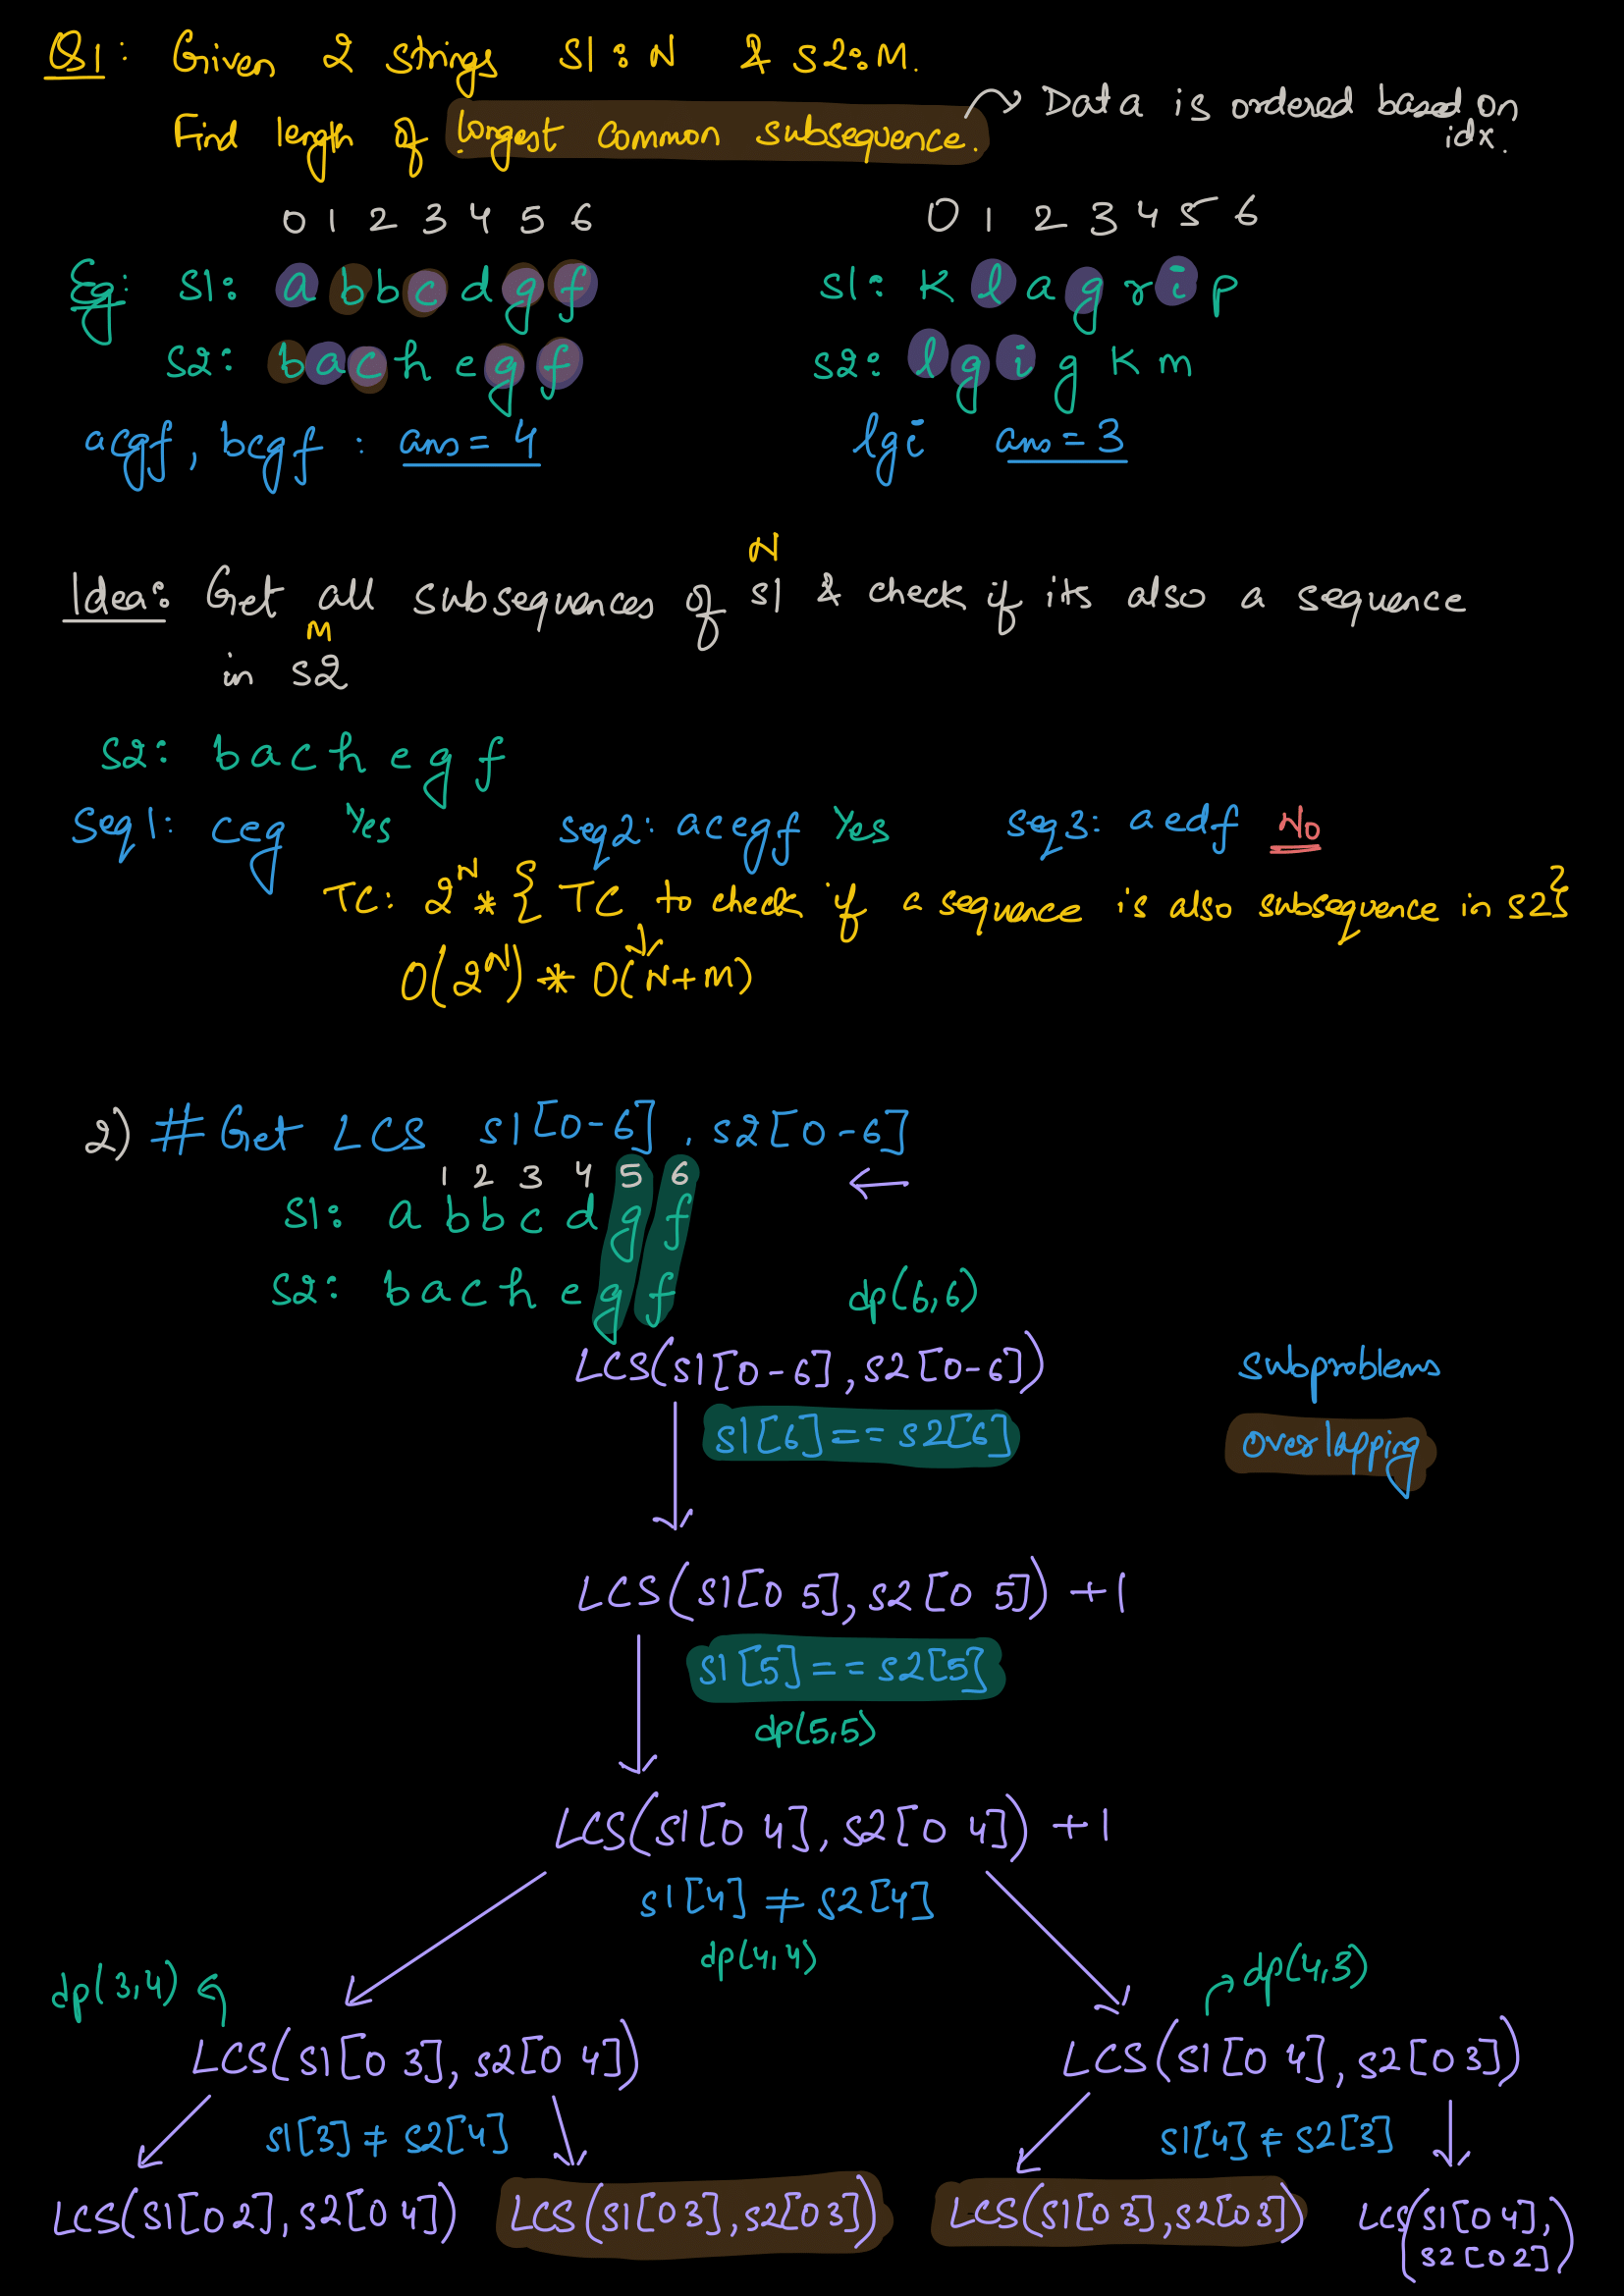 Q1: Given 2 strings S1: N & S2: M.
Find length of longest common subsequence. → Data is ordered based on idx.
0 1 2 3 4 5 6
0 1 2 3 4 5 6
Eg: S1: a b b c d g f
S1: K l a g r i p
S2: b a c h e g f
S2: l g i g K m
acgf, bcgf : ans = 4
lgi ans = 3
N
Idea: Get all subsequences of S1 & check if its also a sequence
M
in S2
S2: b a c h e g f
Seq1: ceg Yes Seq2: acegf Yes Seq3: aedf No
TC: 2^N * { TC to check if a sequence is also subsequence in S2}
O(2^N) * O(N+M)
2) # Get LCS S1[0-6], S2[0-6]
1 2 3 4 5 6
←
S1: a b b c d g f
S2: b a c h e g f
dp(6,6)
LCS(S1[0-6], S2[0-6])
Subproblems
S1[6] == S2[6]
overlapping
LCS(S1[0 5], S2[0 5]) +1
S1[5] == S2[5]
dp(5,5)
LCS(S1[0 4], S2[0 4]) +1
S1[4] ≠ S2[4]
dp(4,4)
dp(3,4)
dp(4,3)
LCS(S1[0 3], S2[0 4])
LCS(S1[0 4], S2[0 3])
S1[3] ≠ S2[4]
S1[4] ≠ S2[3]
LCS(S1[0 2], S2[0 4])
LCS(S1[0 3], S2[0 3])
LCS(S1[0 3], S2[0 3])
LCS(S1[0 4],
S2[0 2])